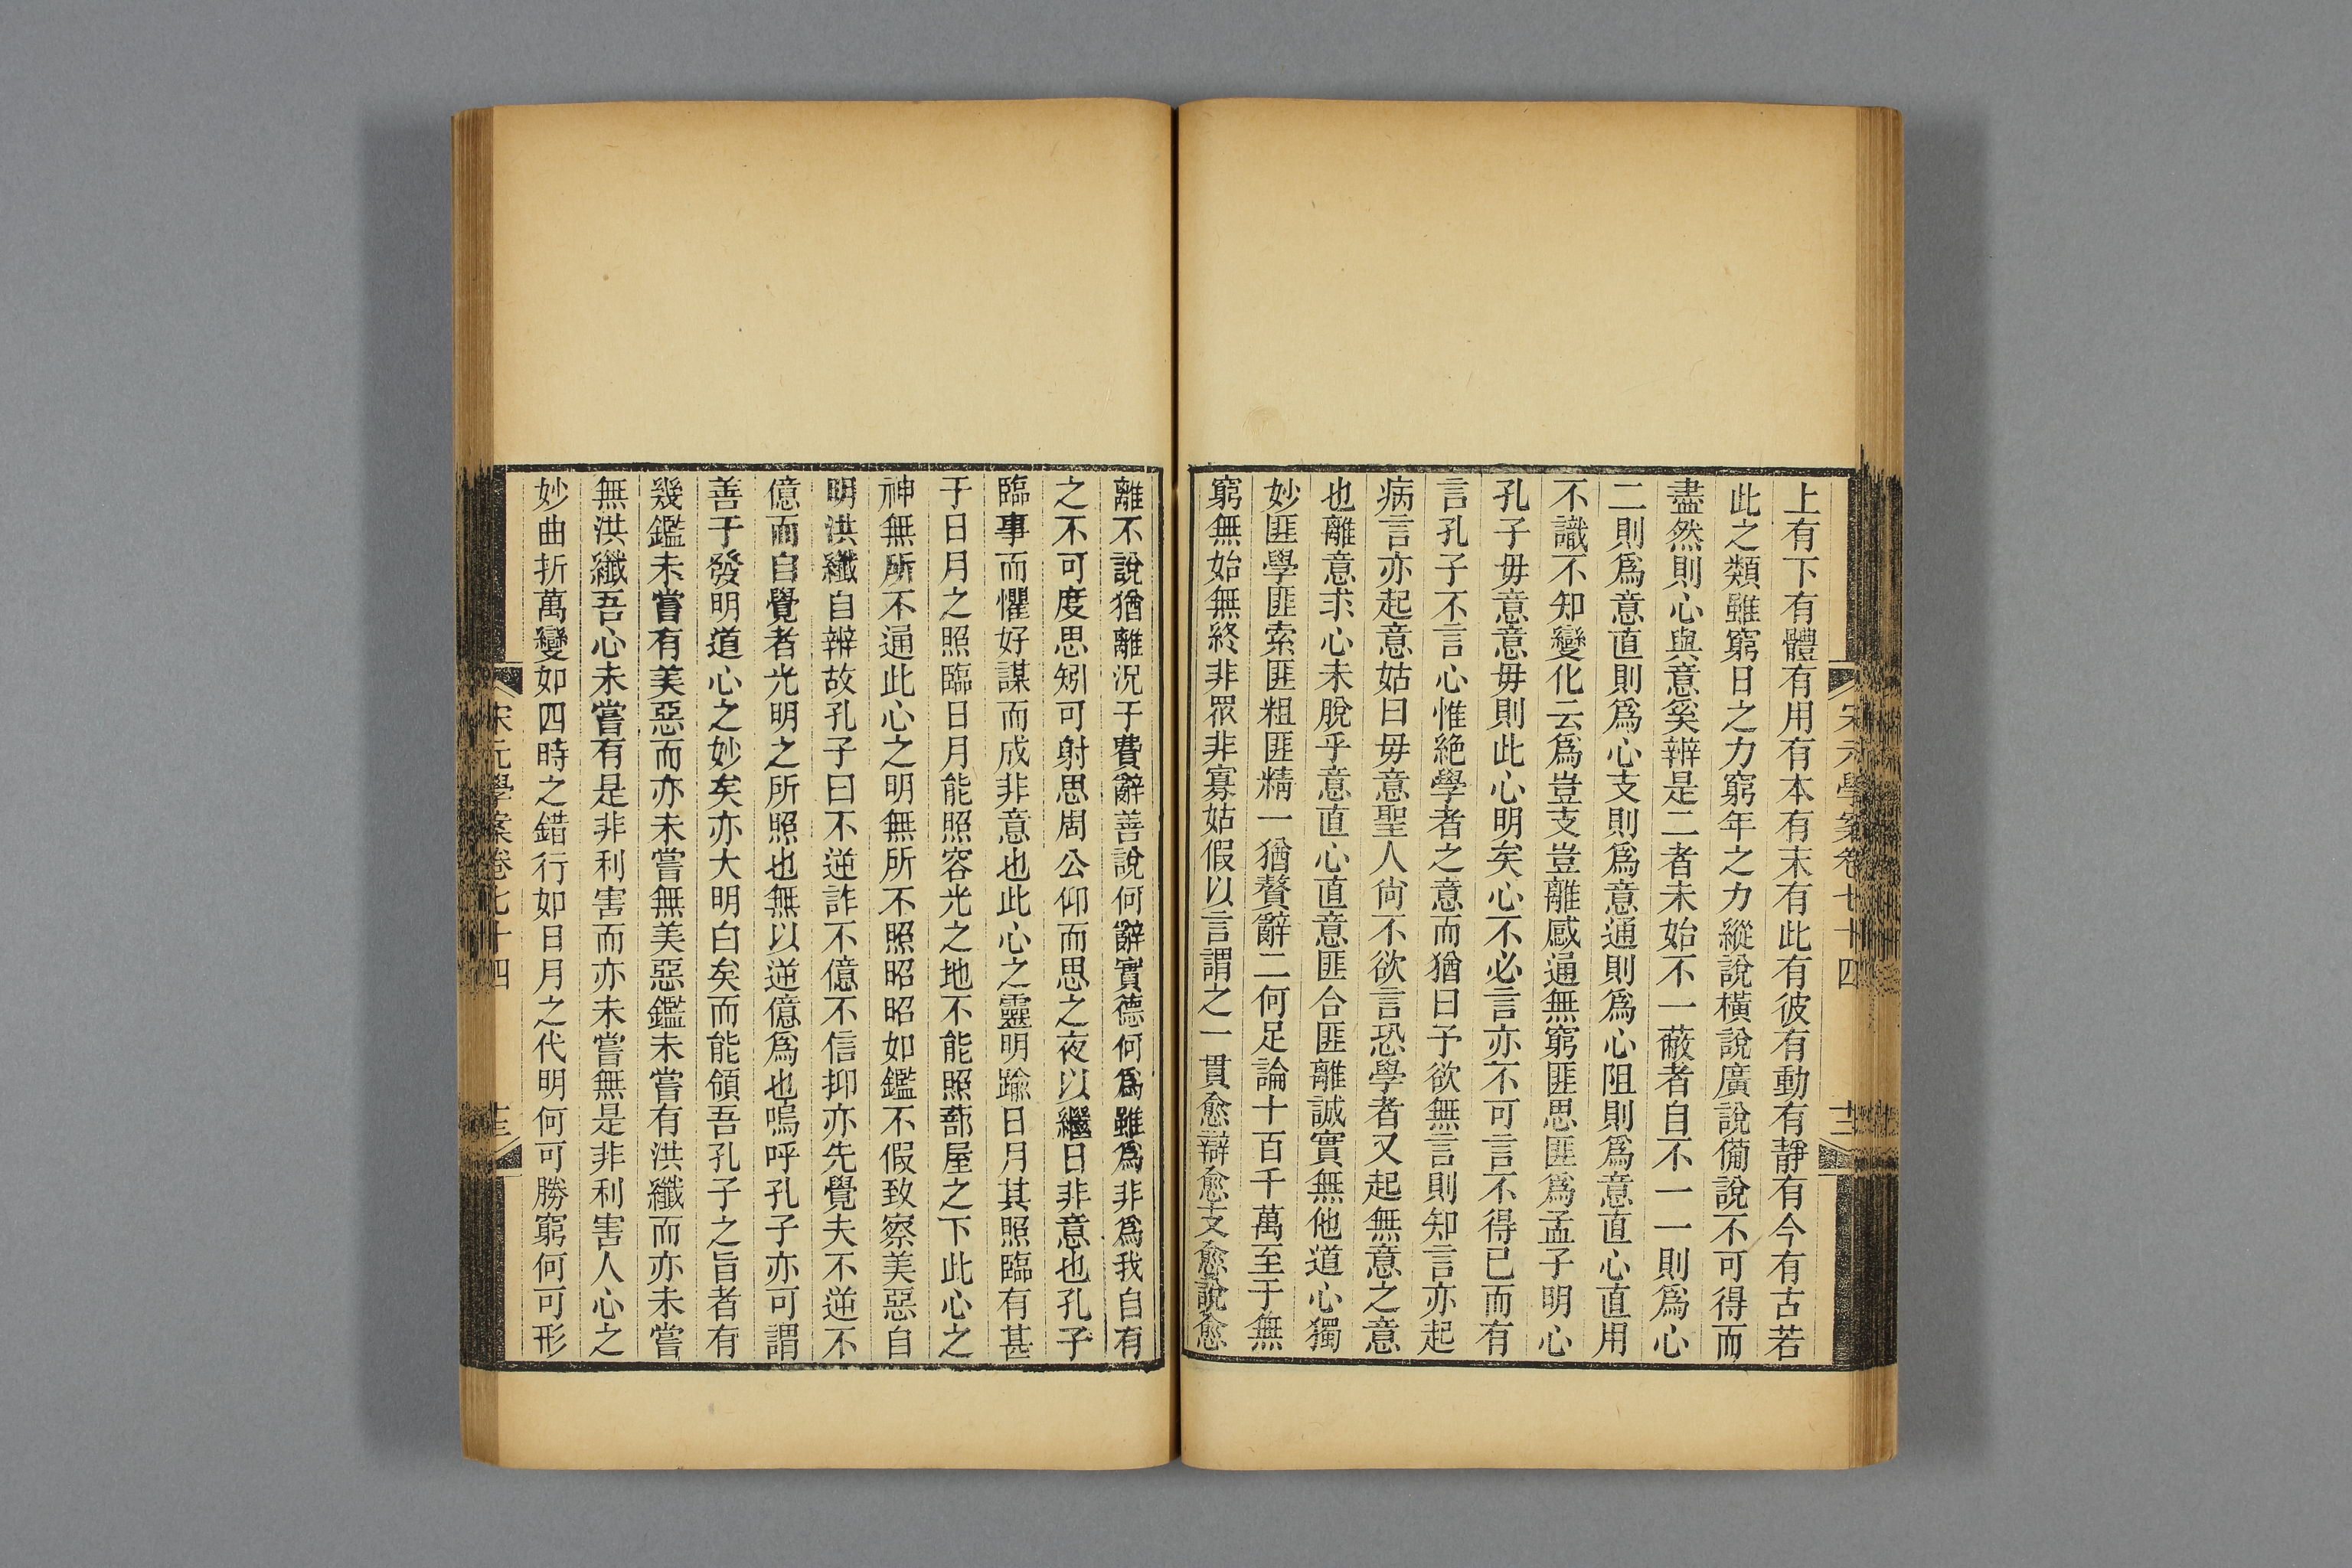 宋元學案卷七十四
十二
上有下有體有用有本有末有此有彼有動有靜有今有古若
此之類雖窮日之力窮年之力縱說橫說廣說備說不可得而
盡然則心與意奚辨是二者未始不一蔽者自不一一則爲心
二則爲意直則爲心支則爲意通則爲心阻則爲意直心直用
不識不知變化云爲豈支豈離感通無窮匪思匪爲孟子明心
孔子毋意意毋則此心明矣心不必言亦不可言不得已而有
言孔子不言心惟絕學者之意而猶曰予欲無言則知言亦起
病言亦起意姑曰毋意聖人尙不欲言恐學者又起無意之意
也離意求心未脫乎意直心直意匪合匪離誠實無他道心獨
妙匪學匪索匪粗匪精一猶贅辭二何足論十百千萬至于無
窮無始無終非眾非寡姑假以言謂之一貫愈辯愈支愈說愈
離不說猶離況于費辭善說何辭實德何爲雖爲非爲我自有
之不可度思矧可射思周公仰而思之夜以繼日非意也孔子
臨事而懼好謀而成非意也此心之靈明踰日月其照臨有甚
于日月之照臨日月能照容光之地不能照蔀屋之下此心之
神無所不通此心之明無所不照昭昭如鑑不假致察美惡自
明洪纖自辨故孔子曰不逆詐不億不信抑亦先覺夫不逆不
億而自覺者光明之所照也無以逆億爲也嗚呼孔子亦可謂
善于發明道心之妙矣亦大明白矣而能領吾孔子之旨者有
幾鑑未嘗有美惡而亦未嘗無美惡鑑未嘗有洪纖而亦未嘗
無洪纖吾心未嘗有是非利害而亦未嘗無是非利害人心之
妙曲折萬變如四時之錯行如日月之代明何可勝窮何可形
宋元學案卷七十四
十三